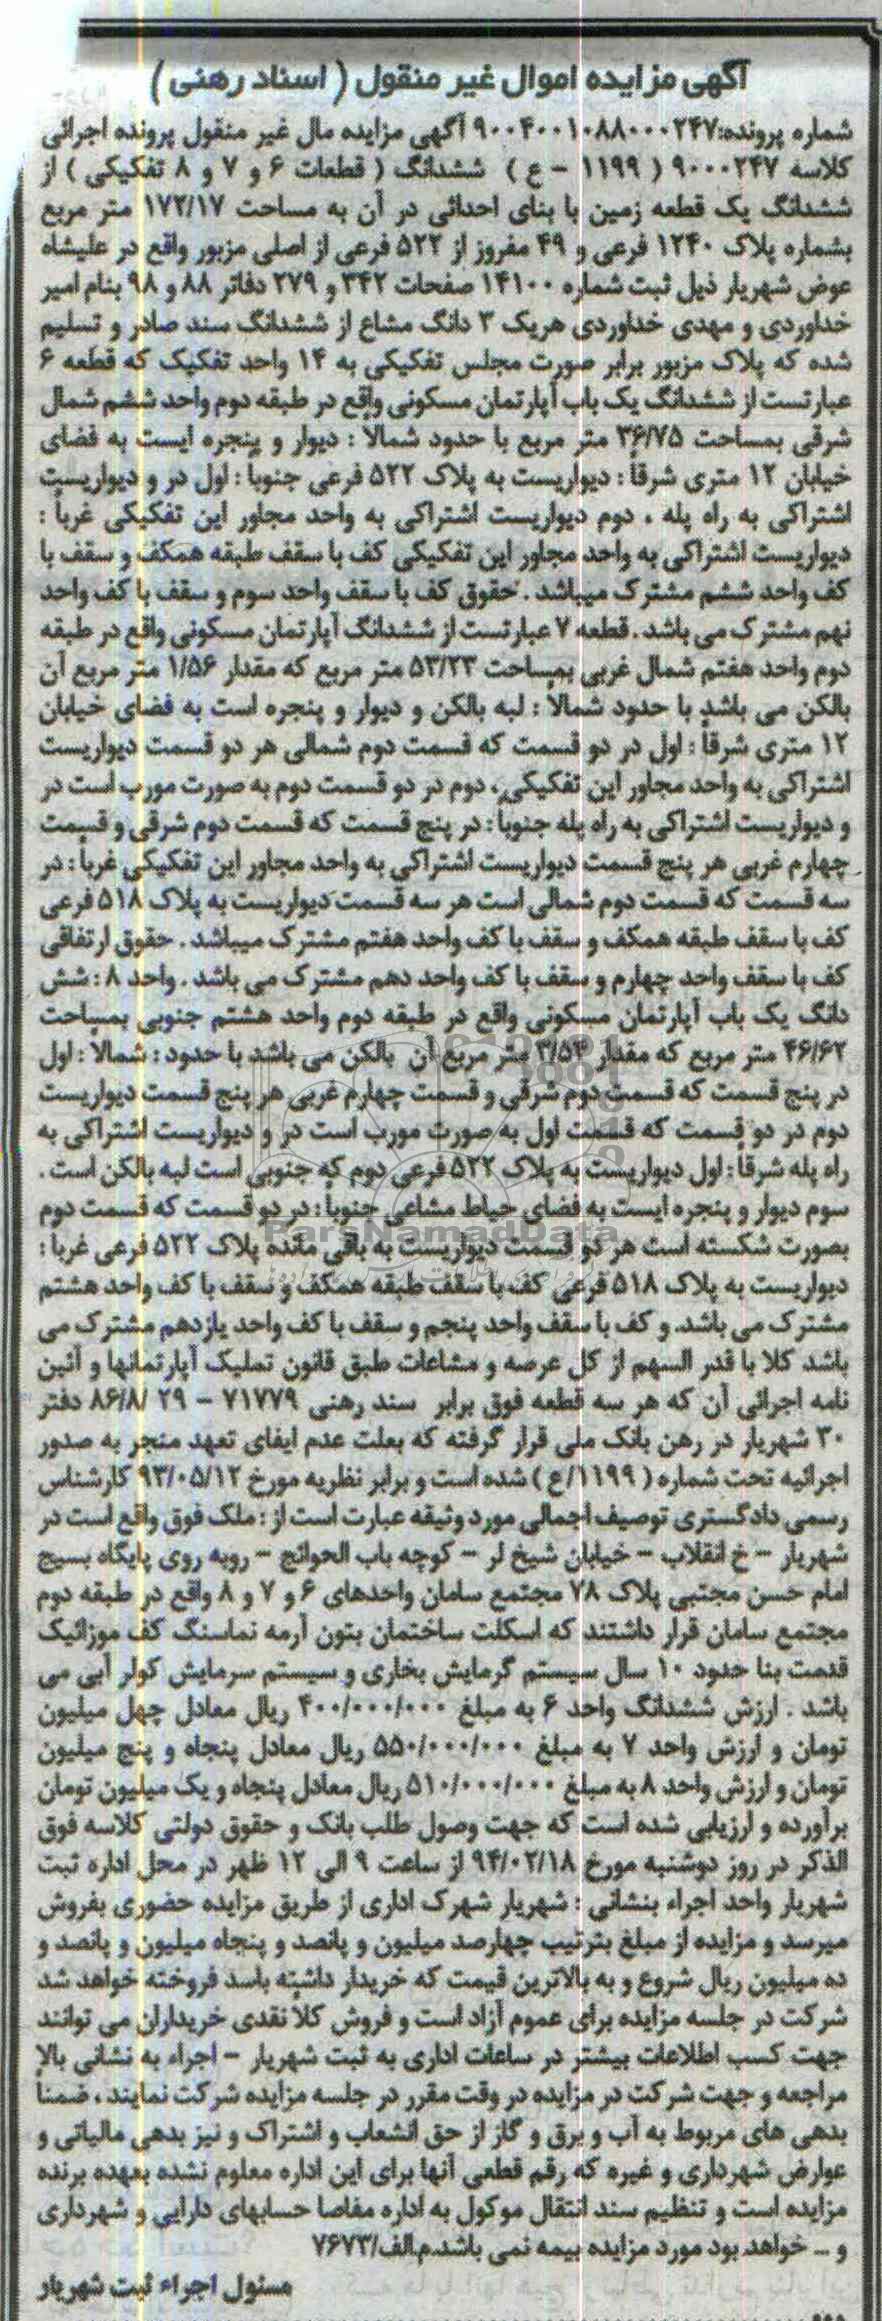 آگهی مزایده اموال غیر منقول ( اسناد رهنی )
شماره پرونده:۹۰۰۴۰۰۱۰۸۸۰۰۰۲۴۷ آگهی مزایده مال غیر منقول پرونده اجرائی
کلاسه ۹۰۰۰۲۴۷ ( ۱۱۹۹ - ع ) ششدانگ ( قطعات ۶ و ۷ و ۸ تفکیکی ) از
ششدانگ یک قطعه زمین با بنای احداثی در آن به مساحت ۱۷۲/۱۷ متر مربع
بشماره پلاک ۱۲۴۰ فرعی و ۴۹ مفروز از ۵۲۲ فرعی از اصلی مزبور واقع در علیشاه
عوض شهریار ذیل ثبت شماره ۱۴۱۰۰ صفحات ۳۴۲ و ۲۷۹ دفاتر ۸۸ و ۹۸ بنام امیر
خداوردی و مهدی خداوردی هریک ۳ دانگ مشاع از ششدانگ سند صادر و تسلیم
شده که پلاک مزبور برابر صورت مجلس تفکیکی به ۱۴ واحد تفکیک که قطعه ۶
عبارتست از ششدانگ یک باب آپارتمان مسکونی واقع در طبقه دوم واحد ششم شمال
شرقی بمساحت ۳۶/۷۵ متر مربع با حدود شمالا : دیوار و پنجره ایست به فضای
خیابان ۱۲ متری شرقاً : دیواریست به پلاک ۵۲۲ فرعی جنوبا : اول در و دیواریست
اشتراکی به راه پله ، دوم دیواریست اشتراکی به واحد مجاور این تفکیکی غرباً :
دیواریست اشتراکی به واحد مجاور این تفکیکی کف با سقف طبقه همکف و سقف با
کف واحد ششم مشترک میباشد . حقوق کف با سقف واحد سوم و سقف با کف واحد
نهم مشترک می باشد . قطعه ۷ عبارتست از ششدانگ آپارتمان مسکونی واقع در طبقه
دوم واحد هفتم شمال غربی بمساحت ۵۳/۲۳ متر مربع که مقدار ۱/۵۶ متر مربع آن
بالکن می باشد با حدود شمالاً : لبه بالکن و دیوار و پنجره است به فضای خیابان
۱۲ متری شرقاً : اول در دو قسمت که قسمت دوم شمالی هر دو قسمت دیواریست
اشتراکی به واحد مجاور این تفکیکی، دوم در دو قسمت دوم به صورت مورب است در
و دیواریست اشتراکی به راه پله جنوبا : در پنج قسمت که قسمت دوم شرقی و قسمت
چهارم غربی هر پنج قسمت دیواریست اشتراکی به واحد مجاور این تفکیکی غرباً : در
سه قسمت که قسمت دوم شمالی است هر سه قسمت دیواریست به پلاک ۵۱۸ فرعی
کف با سقف طبقه همکف و سقف با کف واحد هفتم مشترک میباشد . حقوق ارتفاقی
کف با سقف واحد چهارم و سقف با کف واحد دهم مشترک می باشد . واحد ۸ : شش
دانگ یک باب آپارتمان مسکونی واقع در طبقه دوم واحد هشتم جنوبی بمساحت
۴۶/۶۲ متر مربع که مقدار ۳/۵۴ متر مربع آن بالکن می باشد با حدود : شمالاً : اول
در پنج قسمت که قسمت دوم شرقی و قسمت چهارم غربی هر پنج قسمت دیواریست
دوم در دو قسمت که قسمت اول به صورت مورب است در و دیواریست اشتراکی به
راه پله شرقاً : اول دیواریست به پلاک ۵۲۲ فرعی دوم که جنوبی است لبه بالکن است .
سوم دیوار و پنجره ایست به فضای حیاط مشاعی جنوباً : در دو قسمت که قسمت دوم
ParsNamadData
بصورت شکسته است هر دو قسمت دیواریست به باقی مانده پلاک ۵۲۲ فرعی غربا :
دیواریست به پلاک ۵۱۸ فرعی کف با سقف طبقه همکف و سقف با کف واحد هشتم
مشترک می باشد. و کف با سقف واحد پنجم و سقف با کف واحد یازدهم مشترک می
باشد کلا با قدر السهم از کل عرصه و مشاعات طبق قانون تملیک آپارتمانها و آئین
نامه اجرائی آن که هر سه قطعه فوق برابر سند رهنی ۷۱۷۷۹ - ۲۹ /۸۶/۸ دفتر
۳۰ شهریار در رهن بانک ملی قرار گرفته که بعلت عدم ایفای تعهد منجر به صدور
اجرائیه تحت شماره ( ۱۱۹۹/ع ) شده است و برابر نظریه مورخ ۹۳/۰۵/۱۲ کارشناس
رسمی دادگستری توصیف اجمالی مورد وثیقه عبارت است از : ملک فوق واقع است در
شهریار - خ انقلاب - خیابان شیخ لر - کوچه باب الحوائج - روبه روی پایگاه بسیج
امام حسن مجتبی پلاک ۷۸ مجتمع سامان واحدهای ۶ و ۷ و ۸ واقع در طبقه دوم
مجتمع سامان قرار داشتند که اسکلت ساختمان بتون آرمه نماسنگ کف موزائیک
قدمت بنا حدود ۱۰ سال سیستم گرمایش بخاری و سیستم سرمایش کولر آبی می
باشد . ارزش ششدانگ واحد ۶ به مبلغ ۴۰۰/۰۰۰/۰۰۰ ریال معادل چهل میلیون
تومان و ارزش واحد ۷ به مبلغ ۵۵۰/۰۰۰/۰۰۰ ریال معادل پنجاه و پنج میلیون
تومان و ارزش واحد ۸ به مبلغ ۵۱۰/۰۰۰/۰۰۰ ریال معادل پنجاه و یک میلیون تومان
برآورده و ارزیابی شده است که جهت وصول طلب بانک و حقوق دولتی کلاسه فوق
الذکر در روز دوشنبه مورخ ۹۴/۰۲/۱۸ از ساعت ۹ الی ۱۲ ظهر در محل اداره ثبت
شهریار واحد اجراء بنشانی : شهریار شهرک اداری از طریق مزایده حضوری بفروش
میرسد و مزایده از مبلغ بترتیب چهارصد میلیون و پانصد و پنجاه میلیون و پانصد و
ده میلیون ریال شروع و به بالاترین قیمت که خریدار داشته باسد فروخته خواهد شد
شرکت در جلسه مزایده برای عموم آزاد است و فروش کلاً نقدی خریداران می توانند
جهت کسب اطلاعات بیشتر در ساعات اداری به ثبت شهریار - اجراء به نشانی بالا
مراجعه و جهت شرکت در مزایده در وقت مقرر در جلسه مزایده شرکت نمایند ، ضمناً
بدهی های مربوط به آب و برق و گاز از حق انشعاب و اشتراک و نیز بدهی مالیاتی و
عوارض شهرداری و غیره که رقم قطعی آنها برای این اداره معلوم نشده بعهده برنده
مزایده است و تنظیم سند انتقال موکول به اداره مفاصا حسابهای دارایی و شهرداری
و ... خواهد بود مورد مزایده بیمه نمی باشد.م.الف/۷۶۷۳
مسئول اجراء ثبت شهریار